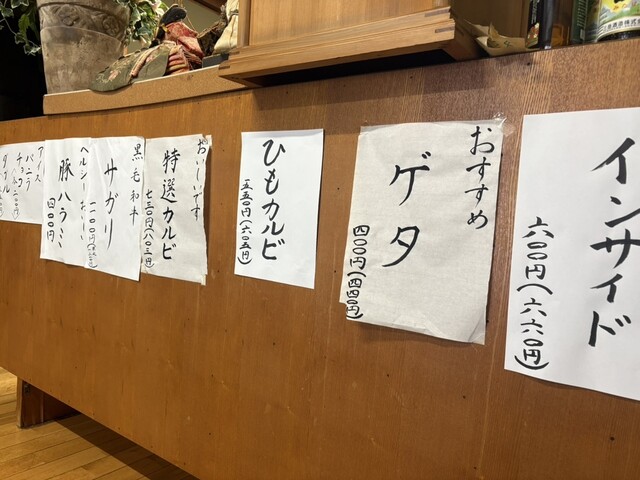 インサイド
六〇〇円(六六〇円)
おすすめ
ゲタ
四〇〇円(四四〇円)
ひもカルビ
五五〇円(六〇五円)
おいしいです
特選カルビ
七三〇円(八〇三円)
黒毛和牛
サガリ
一一〇〇円
ヘルシー
豚ハラミ
四〇〇円
アイス
バニラ
チョコ